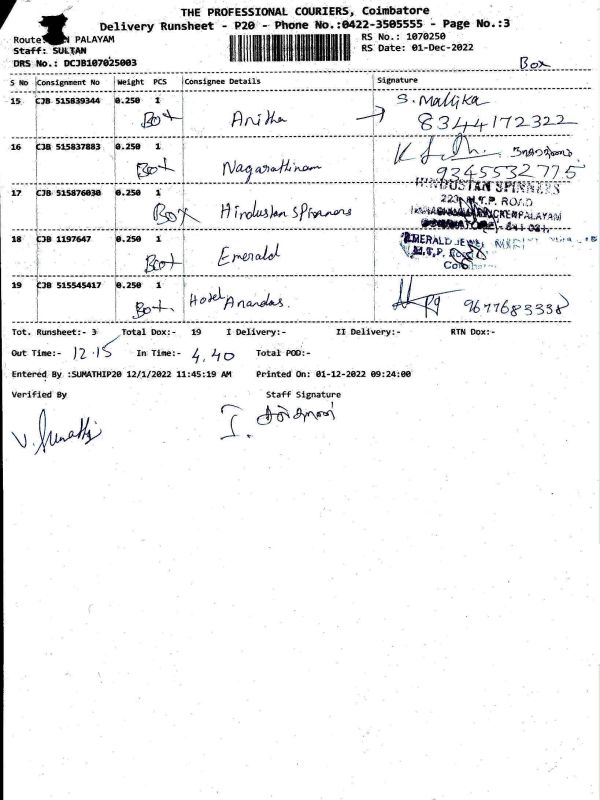 THE PROFESSIONAL COURIERS, Coimbatore
Delivery Runsheet - P20 - Phone No.:0422-3505555 - Page No.:3
Route: PALAYAM
RS No.: 1070250
Staff: SULTAN
RS Date: 01-Dec-2022
DRS No.: DCJB107025003
Box
S No Consignment No Weight PCS Consignee Details Signature
15 CJB 515839344 0.250 1 Box Anitha S. Mallika
8344172322
16 CJB 515837883 0.250 1 Box Nagarathinam
9345532775
17 CJB 515876030 0.250 1 Box Hindustan spinners HINDUSTAN SPINNERS
223, M.T.P. ROAD
18 CJB 1197647 0.250 1 Box Emerald EMERALD JEWEL
M.T.P. Road
19 CJB 515545417 0.250 1 Box Hotel Anandas. 9677683338
Tot. Runsheet:- 3 Total Dox:- 19 I Delivery:- II Delivery:- RTN Dox:-
Out Time:- 12.15 In Time:- 4.40 Total POD:-
Entered By :SUMATHIP20 12/1/2022 11:45:19 AM Printed On: 01-12-2022 09:24:00
Verified By Staff Signature
V. Sumathi